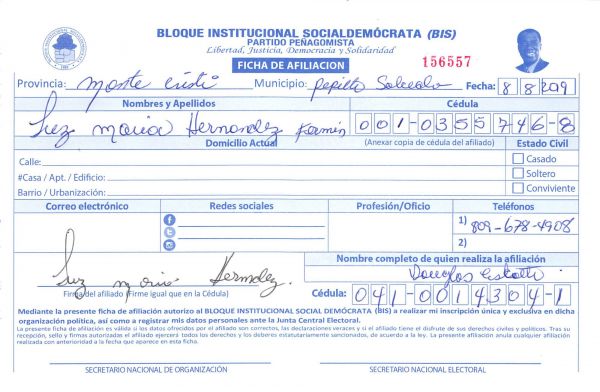 BLOQUE INSTITUCIONAL SOCIALDEMÓCRATA (BIS)
PARTIDO PEÑAGOMISTA
Libertad, Justicia, Democracia y Solidaridad
FICHA DE AFILIACION 156557
Provincia: Monte Cristi Municipio: Pepillo Salcedo Fecha: 8 8 2019
Nombres y Apellidos Cédula
Luz Maria Hernandez Fermin 001-0355746-8
Domicilio Actual (Anexar copia de cédula del afiliado) Estado Civil
Calle: Casado
#Casa / Apt. / Edificio: Soltero
Barrio / Urbanización: Conviviente
Correo electrónico Redes sociales Profesión/Oficio Teléfonos
1) 809-678-4908
2)
Nombre completo de quien realiza la afiliación
Luz Maria Hernandez. Douglas
Firma del afiliado (Firme igual que en la Cédula) Cédula: 041-0014304-1
Mediante la presente ficha de afiliación autorizo al BLOQUE INSTITUCIONAL SOCIAL DEMÓCRATA (BIS) a realizar mi inscripción única y exclusiva en dicha
organización política, así como a registrar mis datos personales ante la Junta Central Electoral.
La presente ficha de afiliación es válida si los datos ofrecidos por el afiliado son correctos, las declaraciones veraces y si el afiliado tiene el disfrute de sus derechos civiles y políticos. Tras su
recepción, sello y firmas autorizadas el afiliado ejercerá todos los derechos y los deberes estatutariamente sancionados, de acuerdo a la ley. La presente afiliación anula cualquier afiliación
realizada con anterioridad a la fecha que aparece en esta ficha.
SECRETARIO NACIONAL DE ORGANIZACIÓN SECRETARIO NACIONAL ELECTORAL